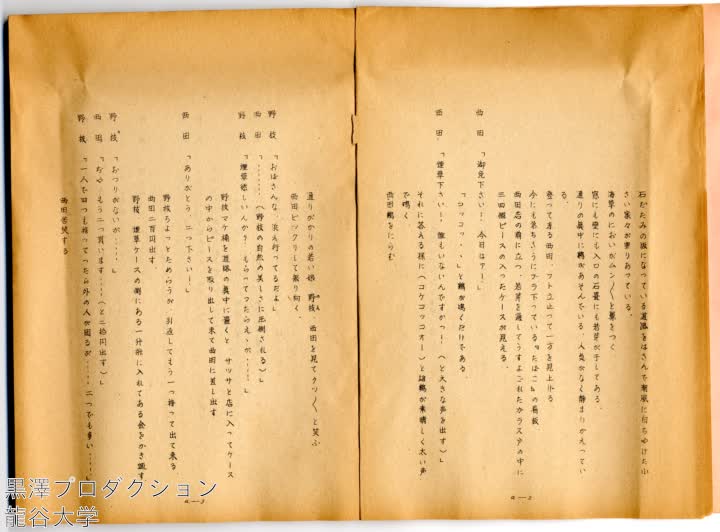 石だたみの坂になっている道路をはさんで潮風に白ちやけた小
さい家々が重りあっている。
海草のにおいがムン／＼と鼻をつく
窓にも壁にも入口の石畳にも若芽が干してある。
通りの真中に鶏があそんでいる、人気がなく静まりかえってい
る。
登って来る西田、フト立止って一方を見上げる
今にも落ちそうにブラ下っている「たばこ」の看板
西田店の前に立つ、若芽を通してうすよごれたガラス戸の中に
三四個ピースの入ったケースが見える。
西田「御免下さい！、今日はァ！」
「コッコッ・・」と鶏が鳴くだけである
西田「煙草下さい！、誰もいないんですかっ！（と大きな声を出す）」
それに答える様に（コケコッコオー）と雄鶏が素晴しく太い声
で鳴く
西田鶏をにらむ
a—2
通りがかりの若い娘 野枝、西田を見てクツ／＼と笑ふ
西田ビックリして振り向く、
野枝「おばさんな、浜え行ってるだよ」
西田「………（野枝の自然の美しさに圧倒される）」
野枝「煙草欲しいんか？もらってったらえゝが……！」
野枝マケ桶を道路の真中に置くと サッサと店に入ってケース
の中からピースを取り出して来て西田に差し出す
西田「ありがとう、二つ下さい！」
野枝ちょっとためらうが 引返してもう一つ持って出て来る、
西田二百円出す
野枝、煙草ケースの側にある一升桝に入れてある金をかき廻す
野枝「おつりがないが……」
西田「じゃ、もう二つ買います……（と二拾円出す）」
野枝「一人で四つも持ってったら外の人が困るが……二つでも多い……」
西田苦笑する
a—3
黒澤プロダクション
龍谷大学